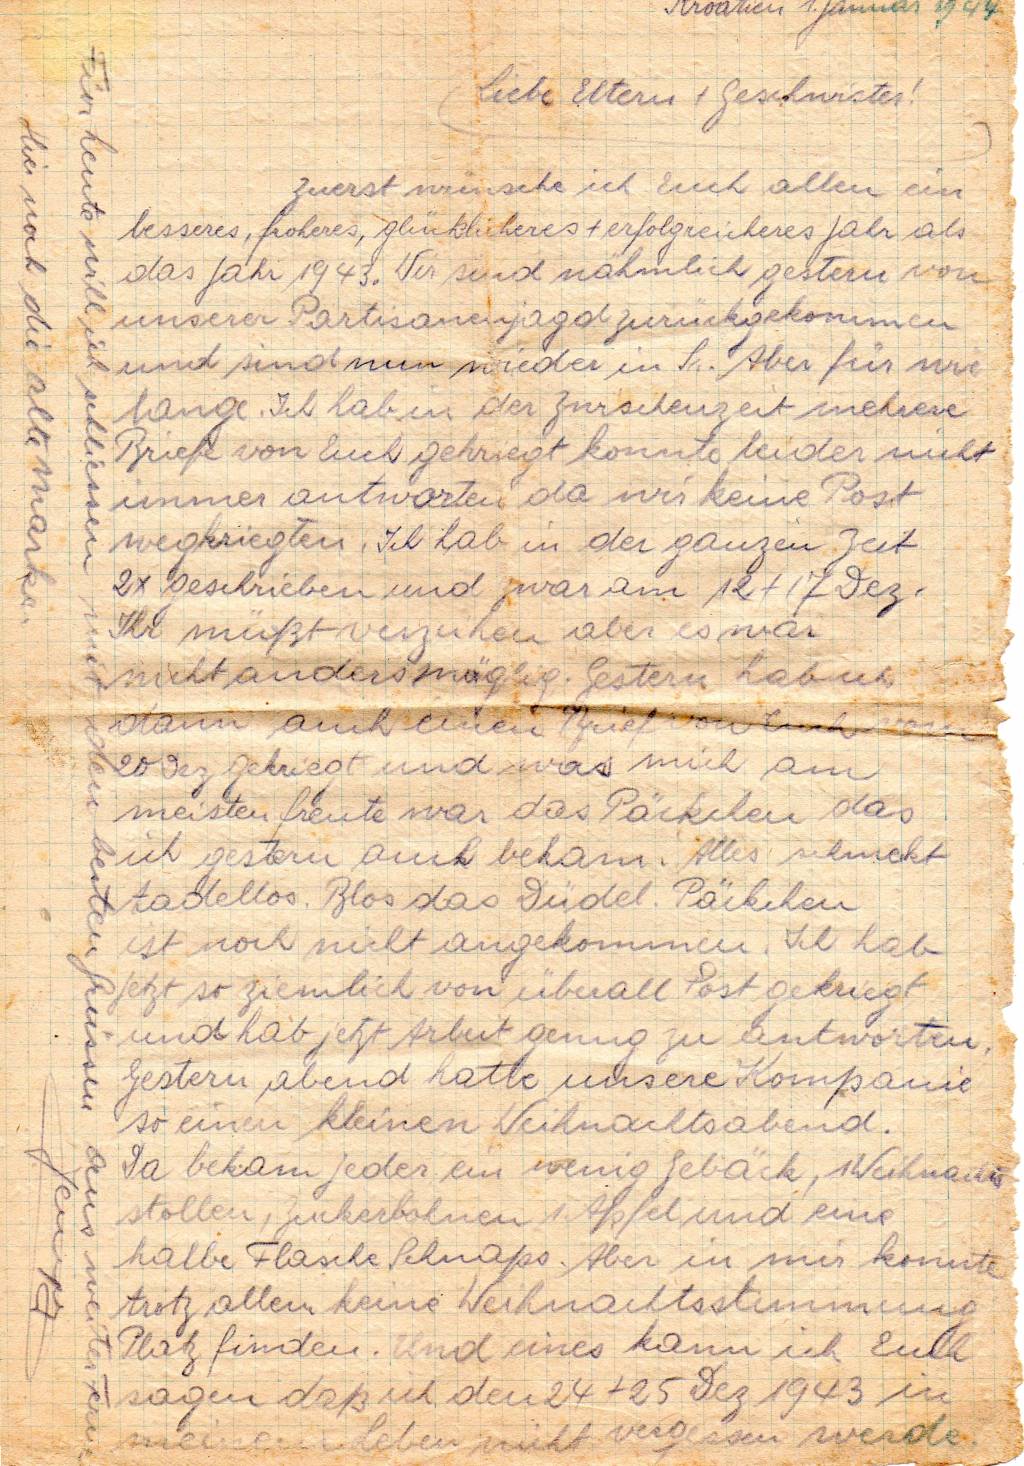 Kroatien 1. Januar 1944
Liebe Eltern + Geschwister!
Zuerst wünsche ich Euch allen ein
besseres, froheres, glücklicheres + erfolgreicheres Jahr als
das Jahr 1943. Wir sind nähmlich gestern von
unserer Partisanenjagd zurückgekommen
und sind nun wieder in S.. Aber für wie
lange. Ich hab in der Zwischenzeit mehrere
Briefe von Euch gekriegt konnte leider nicht
immer antworten da wir keine Post
wegkriegten. Ich hab in der ganzen Zeit
2x geschrieben und zwar am 12 + 17 Dez.
Ihr müßt verzeihen aber es war
nicht anders möglig. Gestern hab ich
dann auch einen Brief von Euch vom
20 Dez gekriegt und was mich am
meisten freute war das Päckchen das
ich gestern auch bekam. Alles schmekt
tadellos. Blos das Düdel. Päckchen
ist noch nicht angekommen. Ich hab
jetzt so ziemlich von überall Post gekriegt
und hab jetzt Arbeit genug zu antworten.
Gestern abend hatte unsere Kompanie
so einen kleinen Weihnachtsabend.
Da bekam jeder ein wenig Gebäck, 1 Weihnachts
stollen, Zuckerbohnen 1 Apfel und eine
halbe Flasche Schnaps. Aber in mir konnte
trotz allem keine Weihnachtsstimmung
Platz finden. Und eines kann ich Euch
sagen daß ich den 24 + 25 Dez 1943 in
meinem Leben nicht vergessen werde.
Für heute will ich schliessen mit den besten Grüssen aus weiter Ferne
Hier noch die alte Marke.